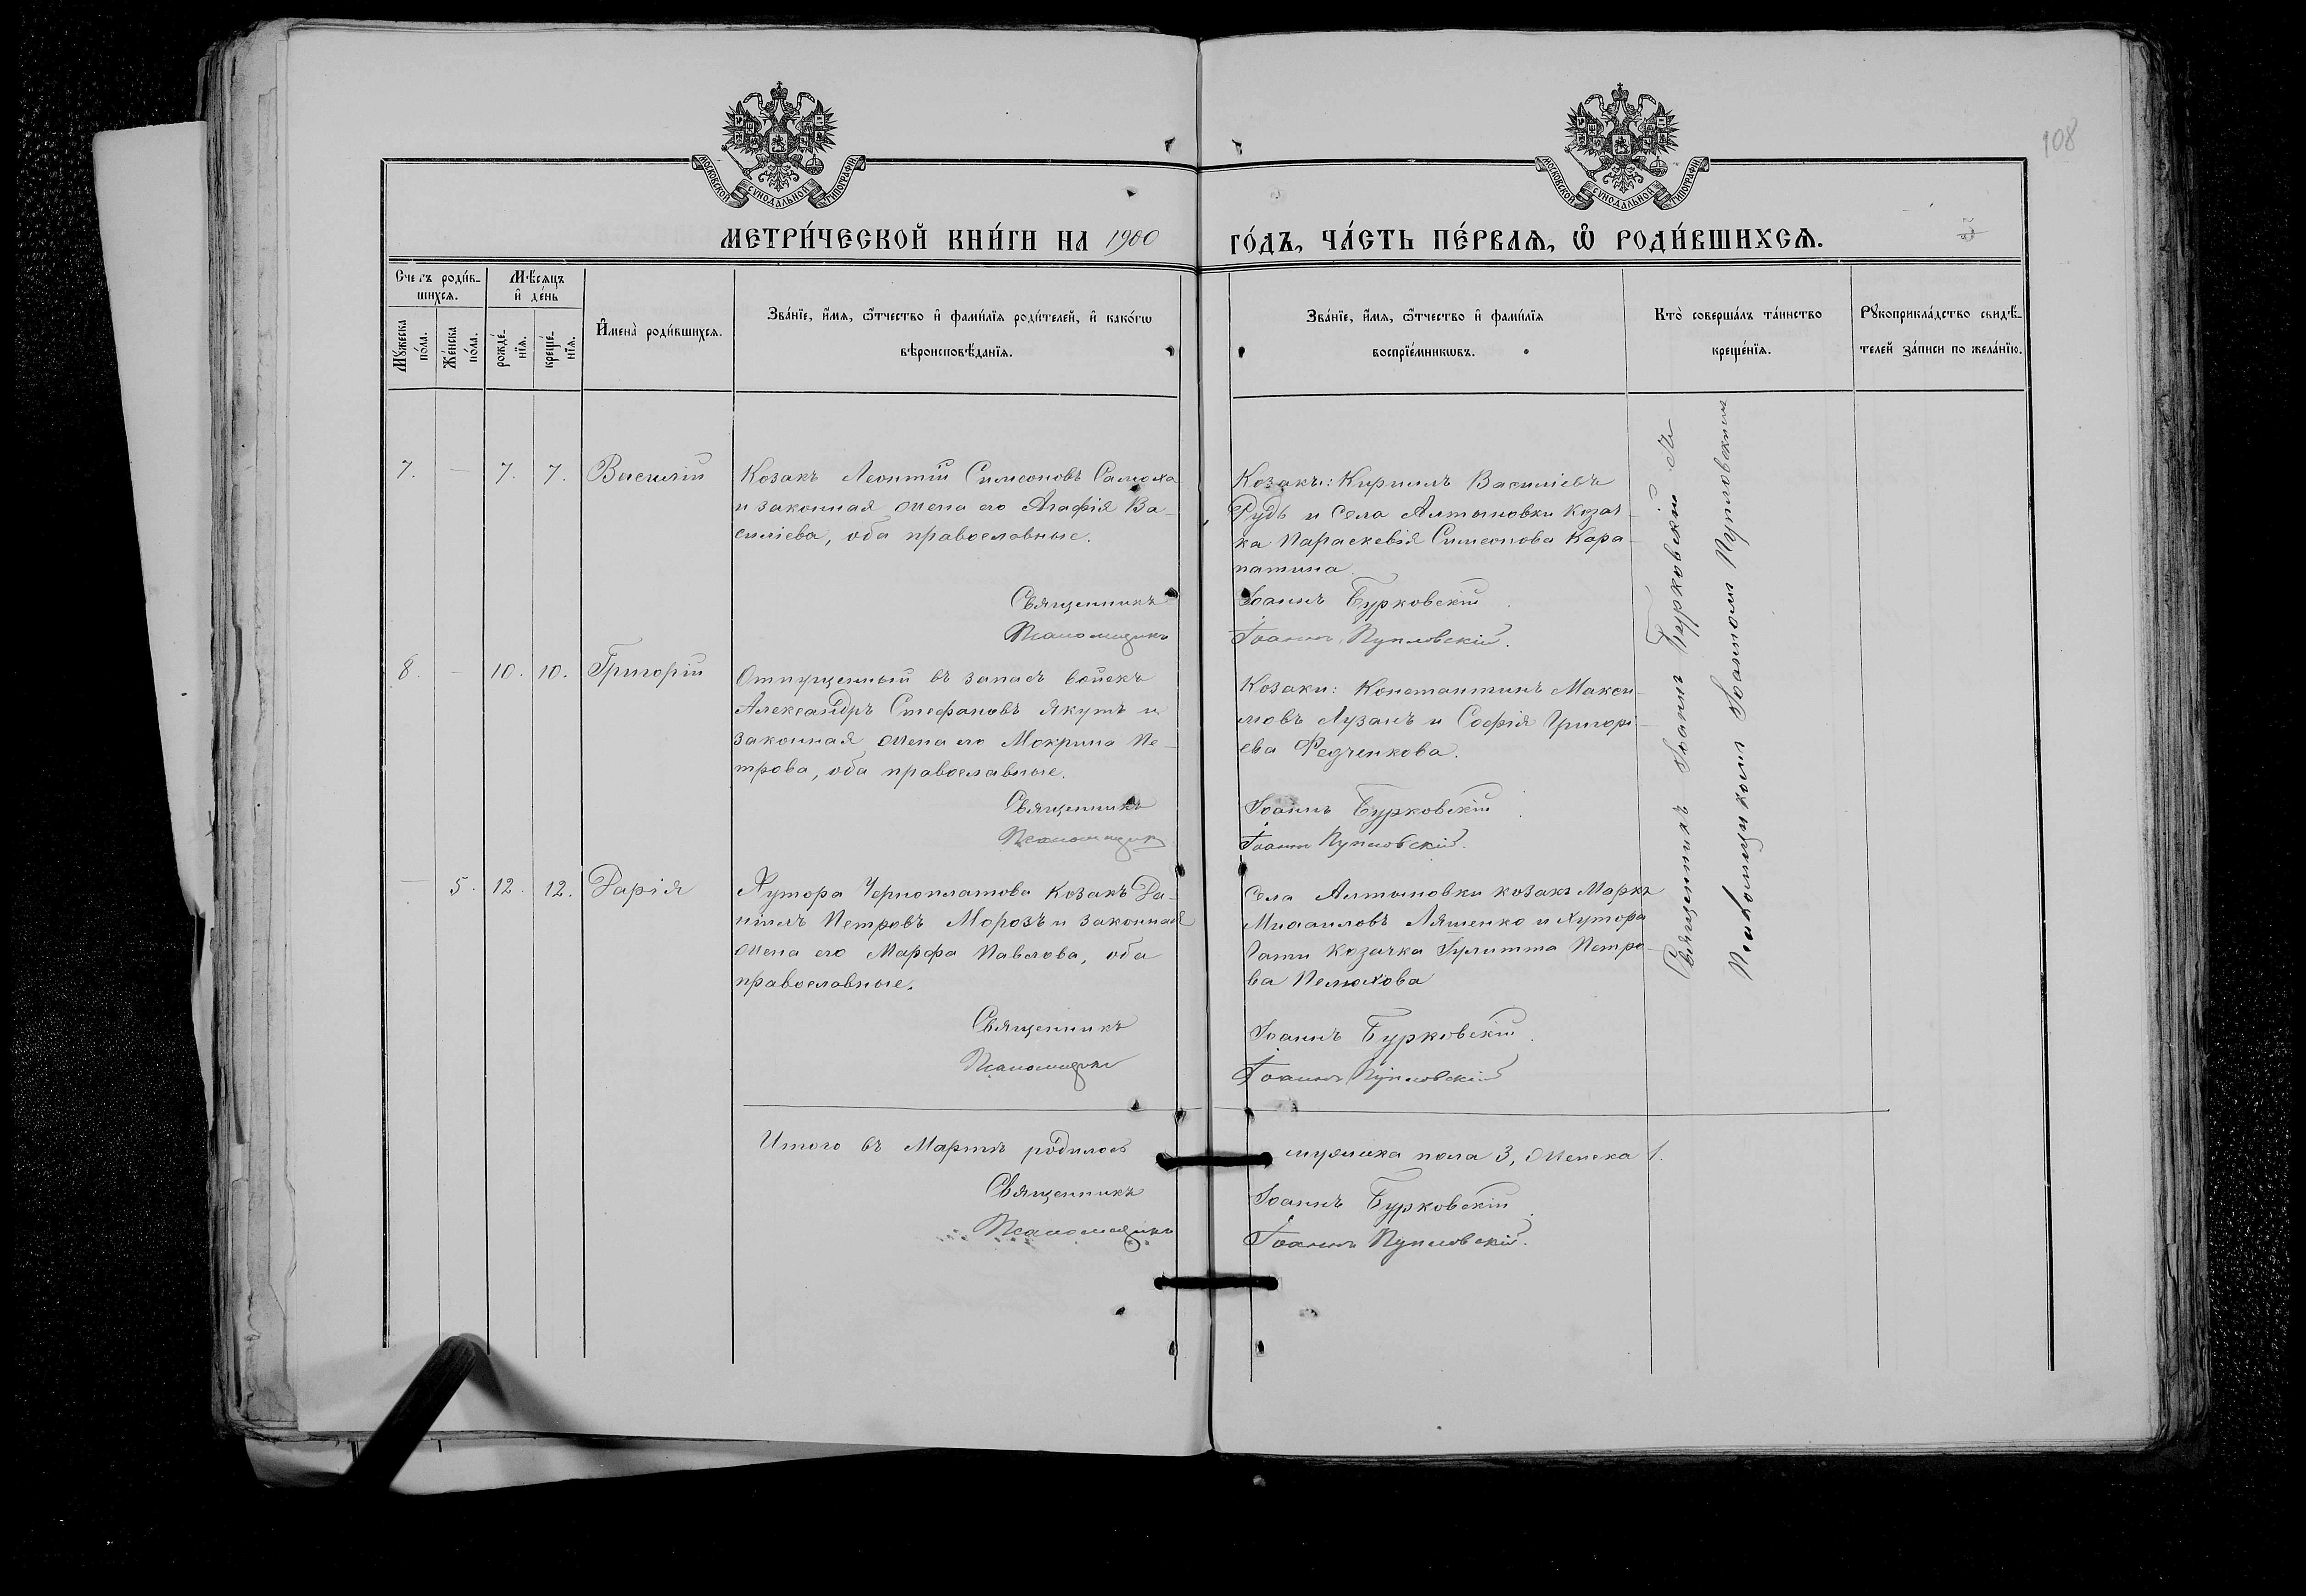 108
МОСКОВСКОЙ СѴНОДАЛЬНОЙ ТИПОГРАФІИ
МОСКОВСКОЙ СѴНОДАЛЬНОЙ ТИПОГРАФІИ
МЕТРИ́ЧЕСКОЙ КНИ́ГИ НА 1900
ГО́ДЪ, ЧА́СТЬ ПЕ́РВАѦ, Ѽ РОДИ́ВШИХСѦ.
Сче́тъ роди́в-
шихсѧ.
Мѣ́сѧцъ
и҆ де́нь
Мꙋ́жеска
по́ла.
Же́нска
по́ла.
рожде́-
нїѧ.
креще́-
нїѧ.
И҆мена̀ роди́вшихсѧ.
Зва́нїе, и҆́мѧ, ѻ҆́тчество и҆ фами́лїѧ роди́телей, и҆ како́гѡ
вѣроисповѣ́данїѧ.
Зва́нїе, и҆́мѧ, ѻ҆́тчество и҆ фами́лїѧ
воспрїе́мникѡвъ.
Кто̀ соверша́лъ та́инство
креще́нїѧ.
Рꙋкоприкла́дство свидѣ́-
телей за́писи по жела́нїю.
7. — 7. 7. Василій
Козакъ Леонтій Симеоновъ Самоха
и законная жена его Агафія Ва-
силіева, оба православные.
Священникъ
Псаломщикъ
Козакъ: Кириллъ Василіевъ
Рудь и села Алтыновки козач-
ка Параскевія Симеонова Кара-
патина.
Іоаннъ Бурковскій
Іоаннъ Пупловскій.
8. — 10. 10. Григорій
Отпущенный въ запасъ войскъ
Александръ Стефановъ Якутъ и
законная жена его Мокрина Пе-
трова, оба православные.
Священникъ
Псаломщикъ
Козаки: Константинъ Макси-
мовъ Лузанъ и Софія Григорі-
ева Федченкова.
Іоаннъ Бурковскій
Іоаннъ Пупловскій.
— 5. 12. 12. Дарія
Хутора Черноплатова козакъ Да-
ніилъ Петровъ Морозъ и законная
жена его Марфа Павлова, оба
православные.
Священникъ
Псаломщикъ
Села Алтыновки козакъ Маркъ
Михаиловъ Ляшенко и хутора
Гати козачка Іулитта Петро-
ва Пелюхова
Іоаннъ Бурковскій
Іоаннъ Пупловскій
Священникъ Іоаннъ Бурковскій съ
Псаломщикомъ Іоанномъ Пупловскимъ
Итого въ Мартѣ родилось
мужеска пола 3, женска 1.
Священникъ
Псаломщикъ
Іоаннъ Бурковскій
Іоаннъ Пупловскій.